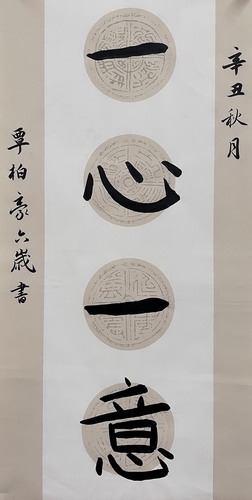 辛丑秋月
一心一意
覃柏豪六歲書